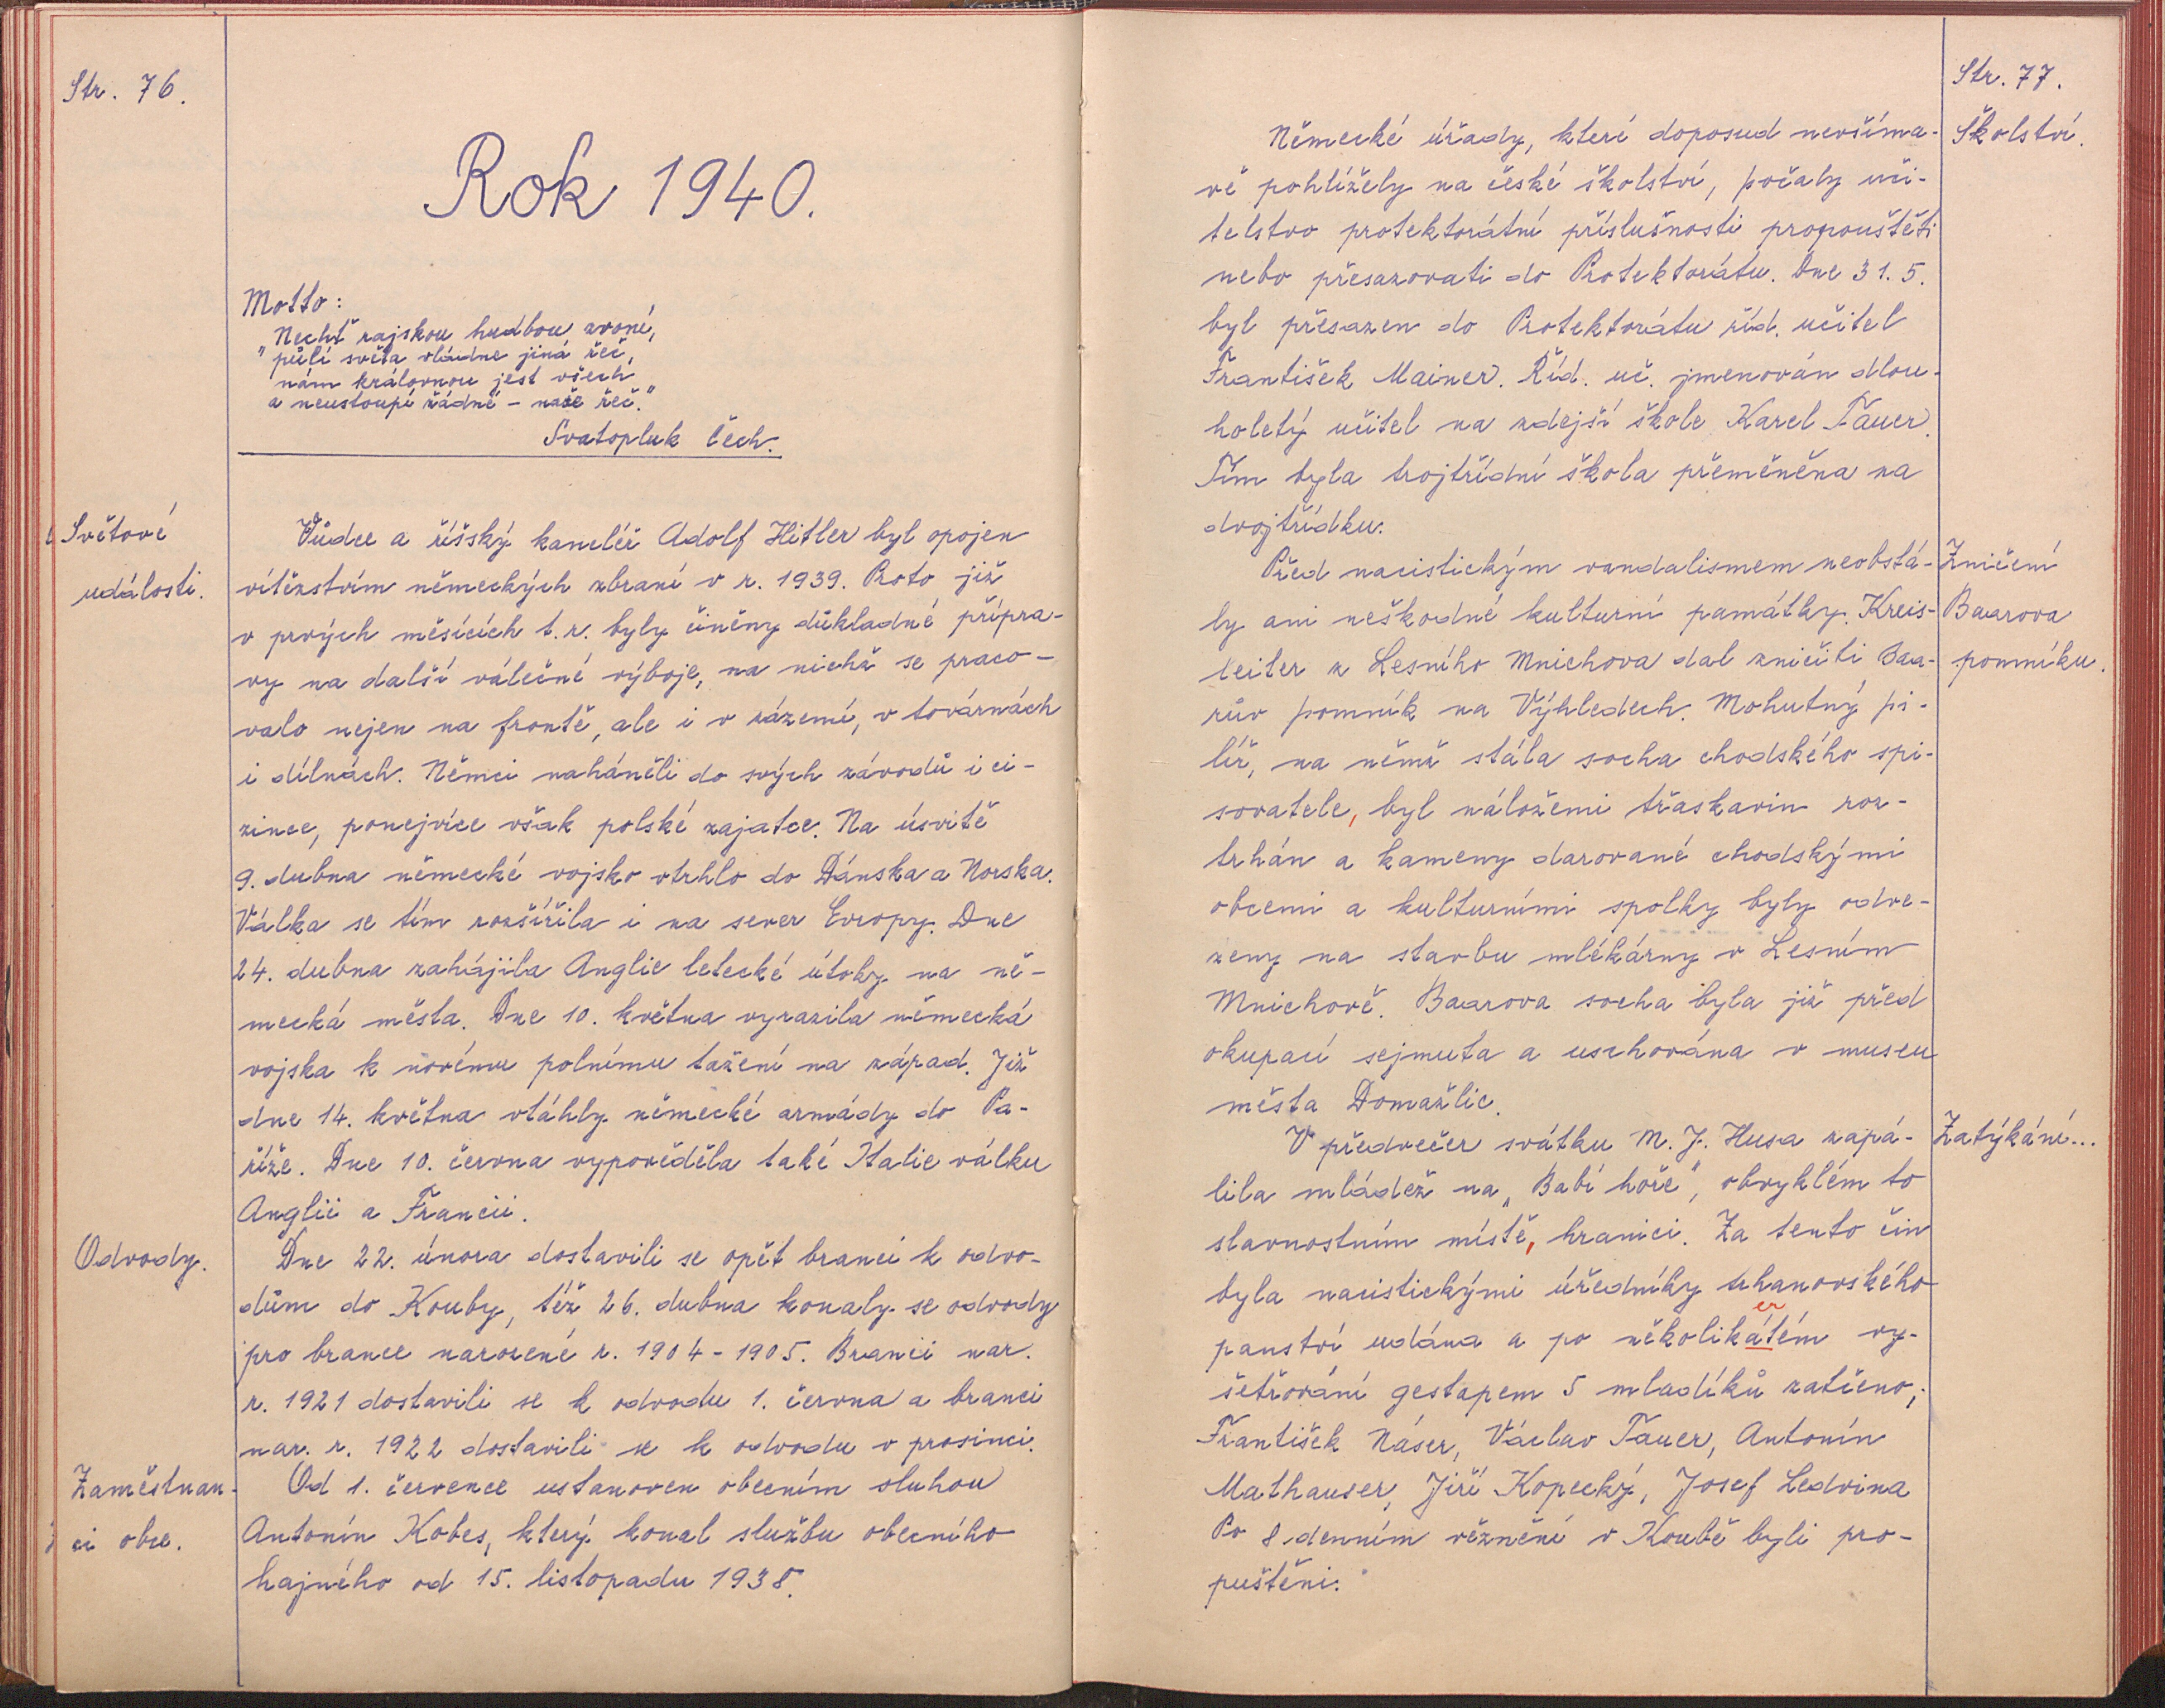 Str. 76.
Rok 1940.
Motto:
"Nechť rajskou hudbou zvoní,
půlí světa vládne jiná řeč,
nám královnou jest všech
a neustoupí žádné – naše řeč."
Svatopluk Čech.
Světové
události.
Vůdce a říšský kancléř Adolf Hitler byl opojen
vítězstvím německých zbraní v r. 1939. Proto již
v prvých měsících t. r. byly činěny důkladné přípra-
vy na další válečné výboje, na nichž se praco-
valo nejen na frontě, ale i v zázemí, v továrnách
i dílnách. Němci naháněli do svých závodů i ci-
zince, ponejvíce však polské zajatce. Na úsvitě
9. dubna německé vojsko vtrhlo do Dánska a Norska.
Válka se tím rozšířila i na sever Evropy. Dne
24. dubna zahájila Anglie letecké útoky na ně-
mecká města. Dne 10. května vyrazila německá
vojska k novému polnímu tažení na západ. Již
dne 14. května vtáhly německé armády do Pa-
říže. Dne 10. června vypověděla také Italie válku
Anglii a Francii.
Odvody.
Dne 22. února dostavili se opět branci k odvo-
dům do Kouby, též 26. dubna konaly se odvody
pro brance narozené r. 1904 - 1905. Branci nar.
r. 1921 dostavili se k odvodu 1. června a branci
nar. r. 1922 dostavili se k odvodu v prosinci.
Zaměstnan-
ci obce.
Od 1. července ustanoven obecním sluhou
Antonín Kobes, který konal službu obecního
hajného od 15. listopadu 1938.
Str. 77.
Školství.
Německé úřady, které doposud nevšíma-
vě pohlížely na české školství, počaly uči-
telstvo protektorátní příslušnosti propouštěti
nebo přesazovati do Protektorátu. Dne 31. 5.
byl přesazen do Protektorátu říd. učitel
František Mainer. Říd. uč. jmenován dlou-
holetý učitel na zdejší škole Karel Tauer.
Tím byla trojtřídní škola přeměněna na
dvojtřídku.
Zničení
Baarova
pomníku.
Před nacistickým vandalismem neobstá-
ly ani neškodné kulturní památky. Kreis-
leiter z Lesního Mnichova dal zničiti Baa-
rův pomník na Výhledech. Mohutný pi-
líř, na němž stála socha chodského spi-
sovatele, byl náložemi třaskavin roz-
trhán a kameny darované chodskými
obcemi a kulturními spolky byly odve-
zeny na stavbu mlékárny v Lesním
Mnichově. Baarova socha byla již před
okupací sejmuta a uschována v museu
města Domažlic.
Zatýkání...
V předvečer svátku M. J. Husa zapá-
lila mládež na "Babí hoře", obvyklém to
slavnostním místě, hranici. Za tento čin
byla nacistickými úředníky trhanovského
panství udána a po několikátém vy-
er
šetřování gestapem 5 mladíků zatčeno;
František Náser, Václav Tauer, Antonín
Mathauser, Jiří Kopecký, Josef Ledvina
Po 8 denním věznění v Koubě byli pro-
puštěni.